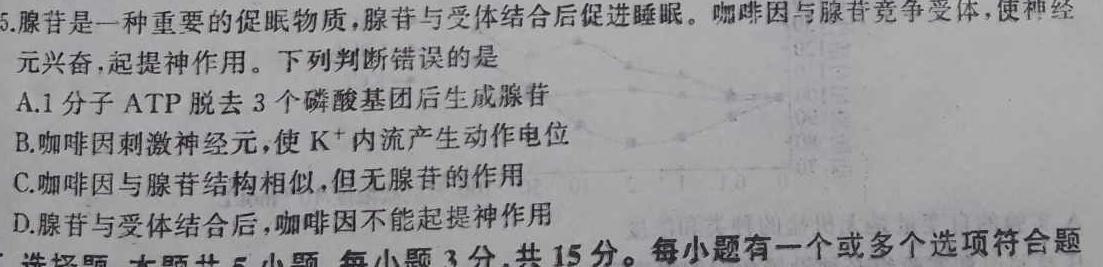 5.腺苷是一种重要的促眠物质,腺苷与受体结合后促进睡眠。咖啡因与腺苷竞争受体,使神经
元兴奋,起提神作用。下列判断错误的是
A.1 分子 ATP 脱去 3 个磷酸基团后生成腺苷
B.咖啡因刺激神经元,使 K⁺ 内流产生动作电位
C.咖啡因与腺苷结构相似,但无腺苷的作用
D.腺苷与受体结合后,咖啡因不能起提神作用
选择题 本题共 5 小题,每小题 3 分,共 15 分。每小题有一个或多个选项符合题